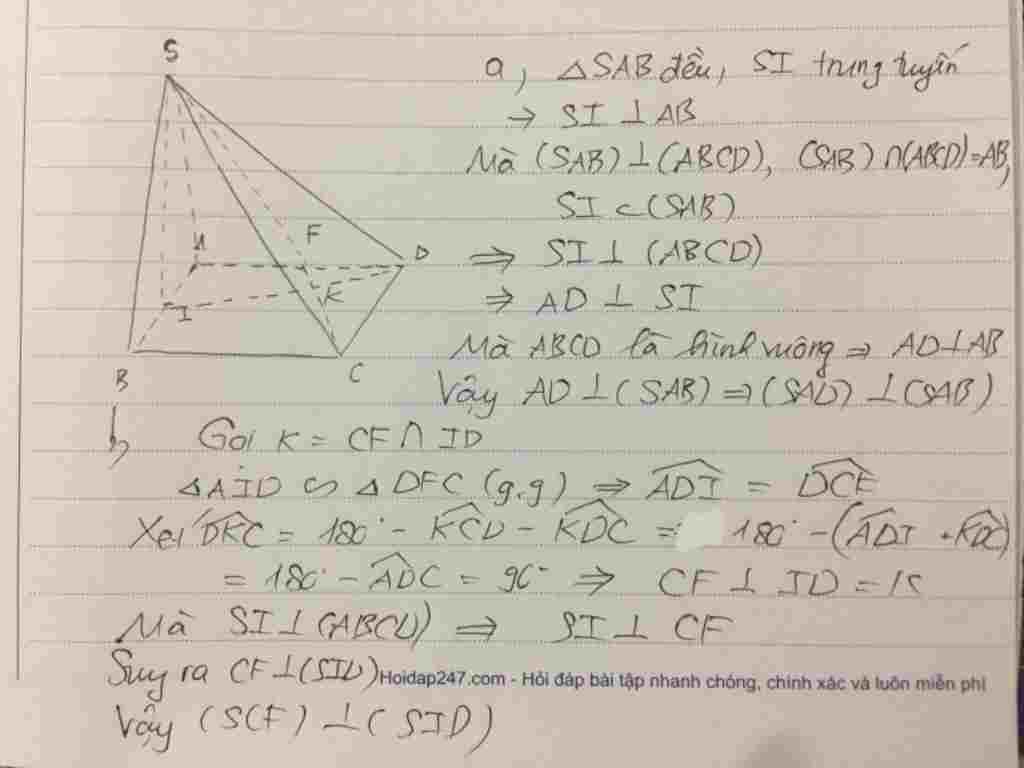 S
a, △SAB đều, SI trung tuyến
→ SI ⊥ AB
Mà (SAB) ⊥ (ABCD), (SAB) ∩ (ABCD) = AB,
SI ⊂ (SAB)
F
A
D
⇒ SI ⊥ (ABCD)
K
I
⇒ AD ⊥ SI
Mà ABCD là hình vuông ⇒ AD ⊥ AB
B
C
Vậy AD ⊥ (SAB) ⇒ (SAD) ⊥ (SAB)
b, Gọi K = CF ∩ ID
△AID ∽ △DFC (g.g) ⇒ \widehat{ADI} = \widehat{DCF}
Xét \widehat{DKC} = 180° - \widehat{KCD} - \widehat{KDC} = 180° - (\widehat{ADI} + \widehat{KDC})
= 180° - \widehat{ADC} = 90° ⇒ CF ⊥ ID = K
Mà SI ⊥ (ABCD) ⇒ SI ⊥ CF
Suy ra CF ⊥ (SID)
Hoidap247.com - Hỏi đáp bài tập nhanh chóng, chính xác và luôn miễn phí
Vậy (SCF) ⊥ (SID)